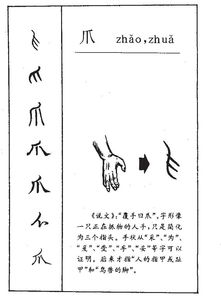 爪 zhǎo,zhuǎ
《说文》:“覆手曰爪”,字形像
一只正在抓物的人手,只是简化
为三个指头。手状从“采”、“为”、
“爰”、“受”、“孚”、“妥”等字可以
证明。后来才指“人的指甲或趾
甲”和“鸟兽的脚”。